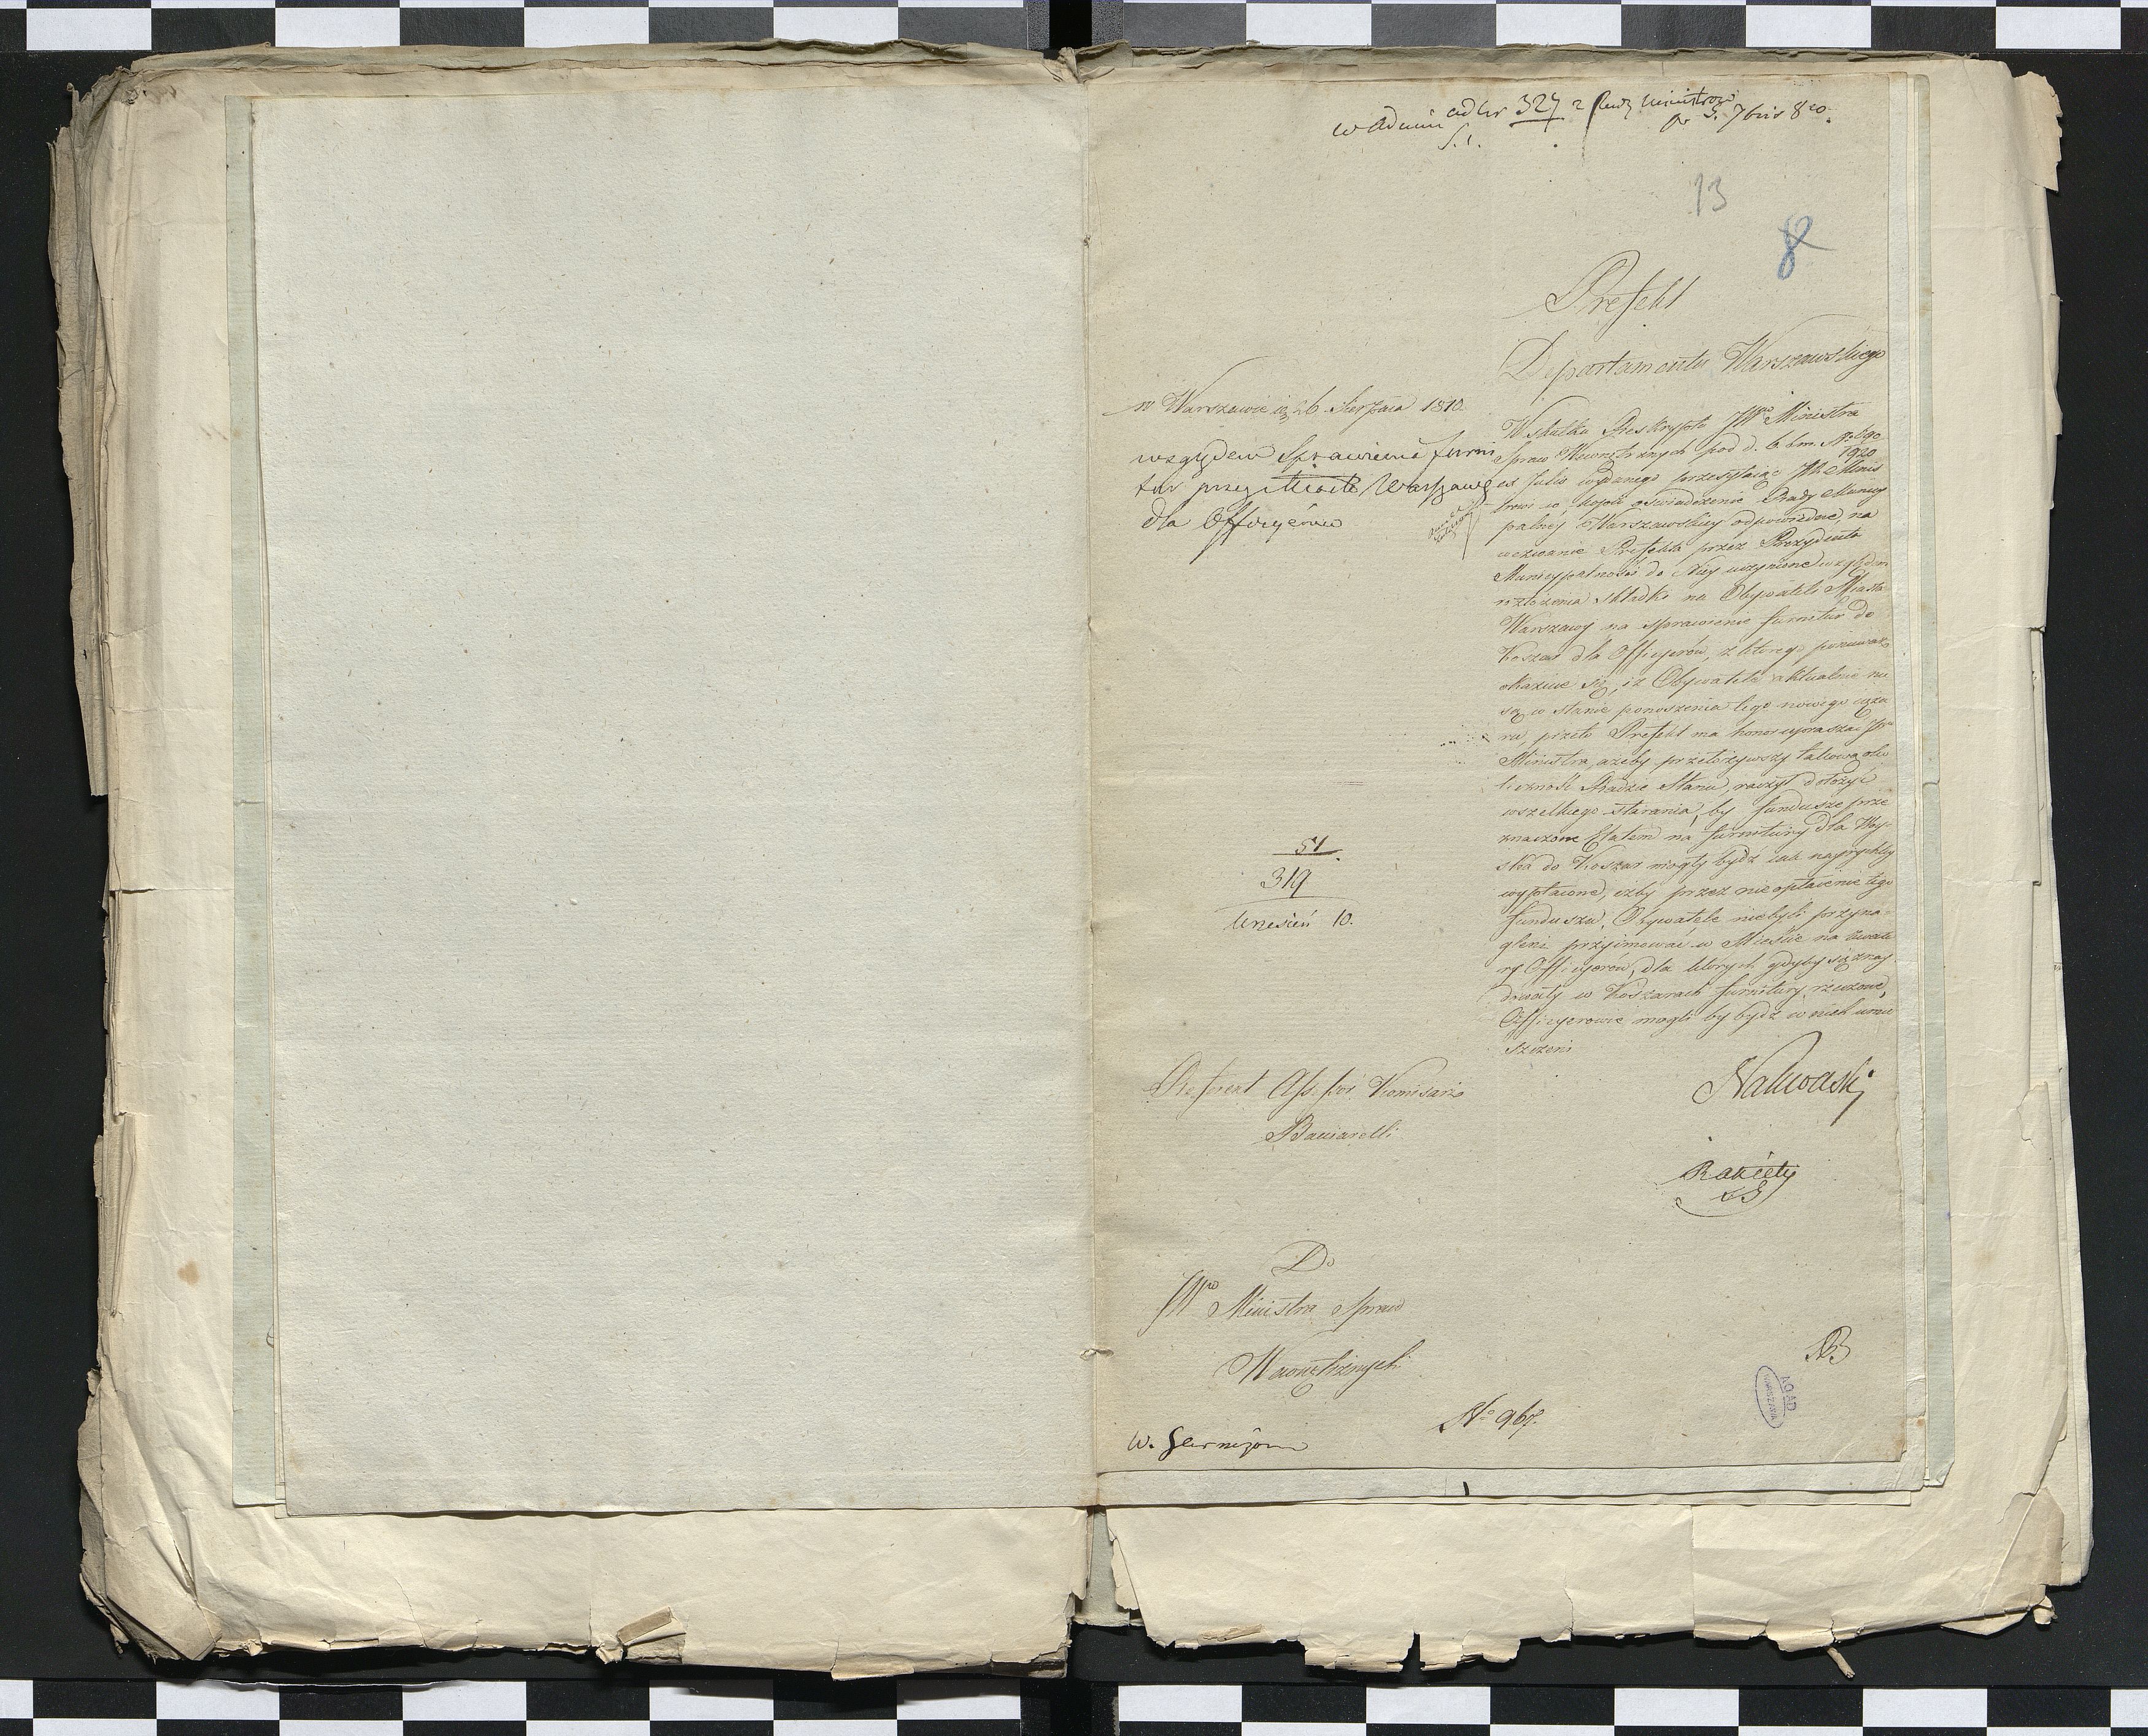 w Admin ad Nr 327 z Rady Ministrów
S. 1.
dr 3. 7bris 810.
13
8
Prefekt
Departamentu Warszawskiego
w Warszawie d. 26 Sierpnia 1810
względem sprawienia furni
tur przez Miasto Warszawę
dla Officyerów
W skutku Reskryptu JWgo Ministra
Spraw Wewnętrznych pod d. 6 b.m. No 690
1920
et Julio wydanego przesyłając JW. Minis
trowi w kopii oświadczenie Rady Municy
palney Warszawskiey odpowiednie, na
wezwanie Prefekta przez Prezydenta
Municypalności do Niey uczynione względem
rozłożenia składki na Obywateli Miasta
Warszawy na sprawienie furnitur do
Koszar dla Officyerów, z którego ponieważ
okazuie się, iż Obywatele aktualnie nie
są w stanie ponoszenia tego nowego cięża
ru, przeto Prefekt ma honor upraszać JW
Ministra, ażeby przełożywszy takową oko
liczność Radzie Stanu, raczył dołożyć
wszelkiego starania, by fundusze prze
znaczone Etatem na furnitury dla Woy-
ska do Koszar mogły bydź iak nayrychley
wypłacone, ażby przez nieopłacenie tego
funduszu, Obywatele niebyli przyna-
gleni przyimować w Mieście na kwate
ry Officyerów, dla których gdyby się znay
dowały w Koszarach furnitury rzeczone,
Officyerowie mogli by bydź w nich umie
szczeni
51
319
Wrzesień 10.
Nakwaski
Referent Assessor Komisarz
Bacciarelli
Rakiety
SG
Do
JWgo Ministra Spraw
Wewnętrznych
No 967.
W. Garnizonu
AGAD
WARSZAWA